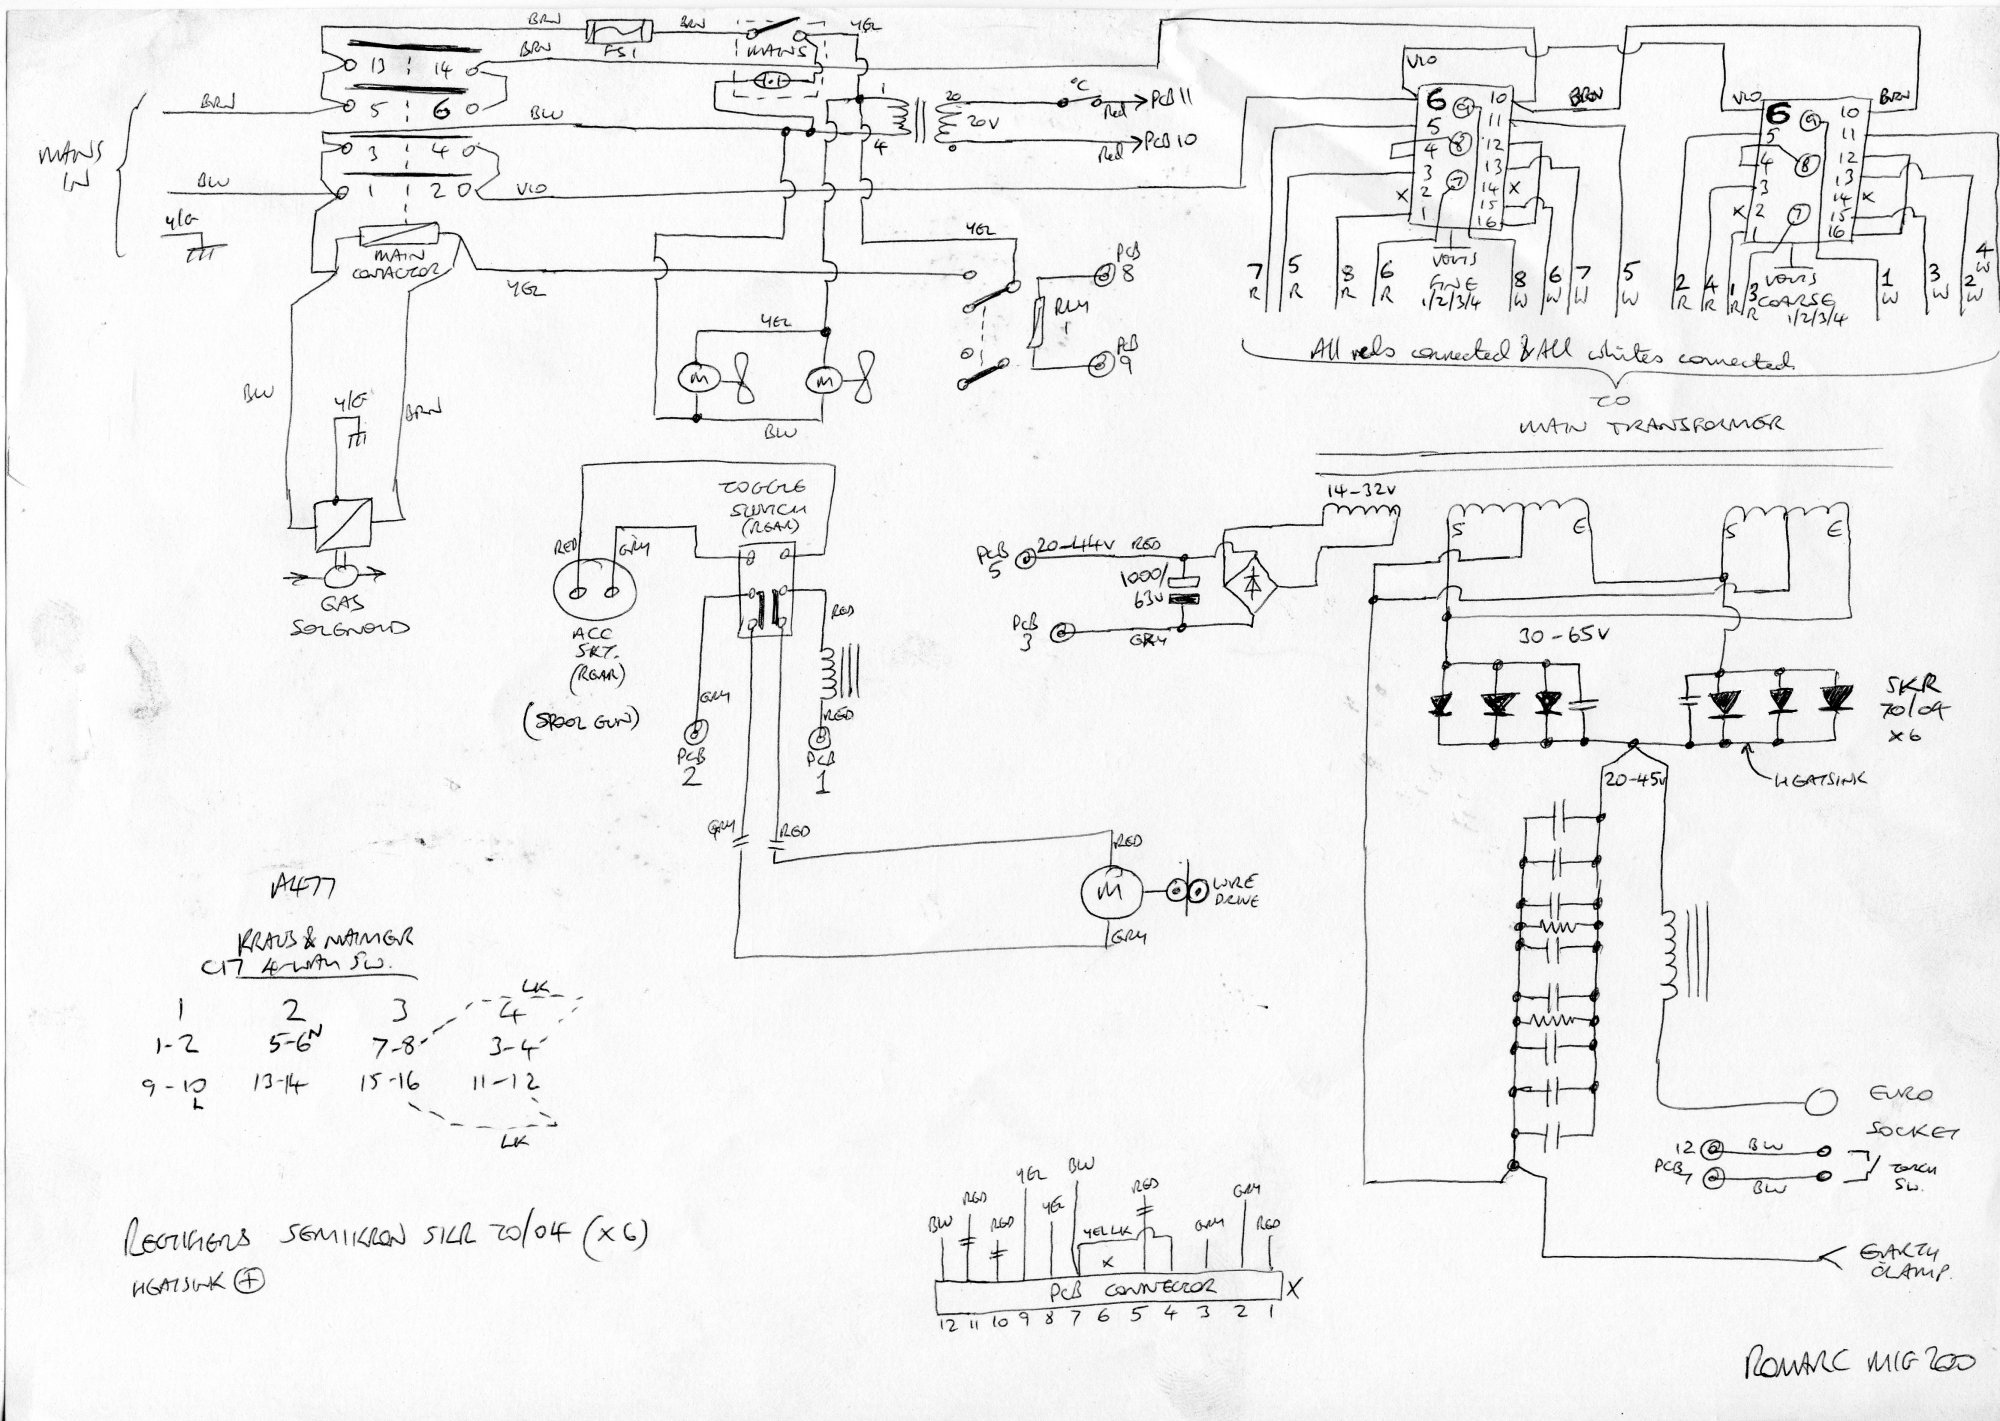 BRN
FS1
BRN
MAINS
YEL
BRN
13 14
5 6
BRN
MAINS
IN
BLU
3 4
1 2
BLU
VIO
Y/G
MAIN
CONTACTOR
YEL
1
4
20
20V
0
°C
Red → PCB 11
Red → PCB 10
YEL
PCB
8
RLY
1
PCB
9
YEL
M
M
BLU
BLU
Y/G
BRN
GAS
SOLENOID
VIO
6 9 10
5 11
4 8 12
3 13
2 7 14
1 15
16
X
X
BRN
VOLTS
FINE
1/2/3/4
7 R
5 R
8 R
6 R
8 W
6 W
7 W
5 W
VIO
6 9 10
5 11
4 8 12
3 13
2 14
1 7 15
16
X
X
BRN
VOLTS
COARSE
1/2/3/4
2 R
4 R
1 R
3 R
1 W
3 W
2 W
4 W
All reds connected & All whites connected
TO
MAIN TRANSFORMER
TOGGLE
SWITCH
(REAR)
RED
GRY
ACC
SKT.
(REAR)
(SPOOL GUN)
GRY
PCB
2
RED
RED
PCB
1
GRY
RED
RED
M
GRY
WIRE
DRIVE
14-32V
PCB
5
20-44V RED
1000/
63V
PCB
3
GRY
S E
S E
30-65V
SKR
70/04
X6
HEATSINK
20-45V
EURO
SOCKET
12 BLU
PCB 7 BLU
TORCH
SW.
EARTH
CLAMP.
A477
KRAUS & NAIMER
C17 4-WAY SW.
1 2 3 4
LK
1-2 5-6 N 7-8 3-4
9-10 13-14 15-16 11-12
L
LK
RECTIFIERS SEMIKRON SKR 70/04 (X6)
HEATSINK +
BLU
RED
RED
YEL
YEL
BLU
YEL LK
X
RED
GRY
GRY
RED
PCB CONNECTOR X
12 11 10 9 8 7 6 5 4 3 2 1
ROMARC MIG 200